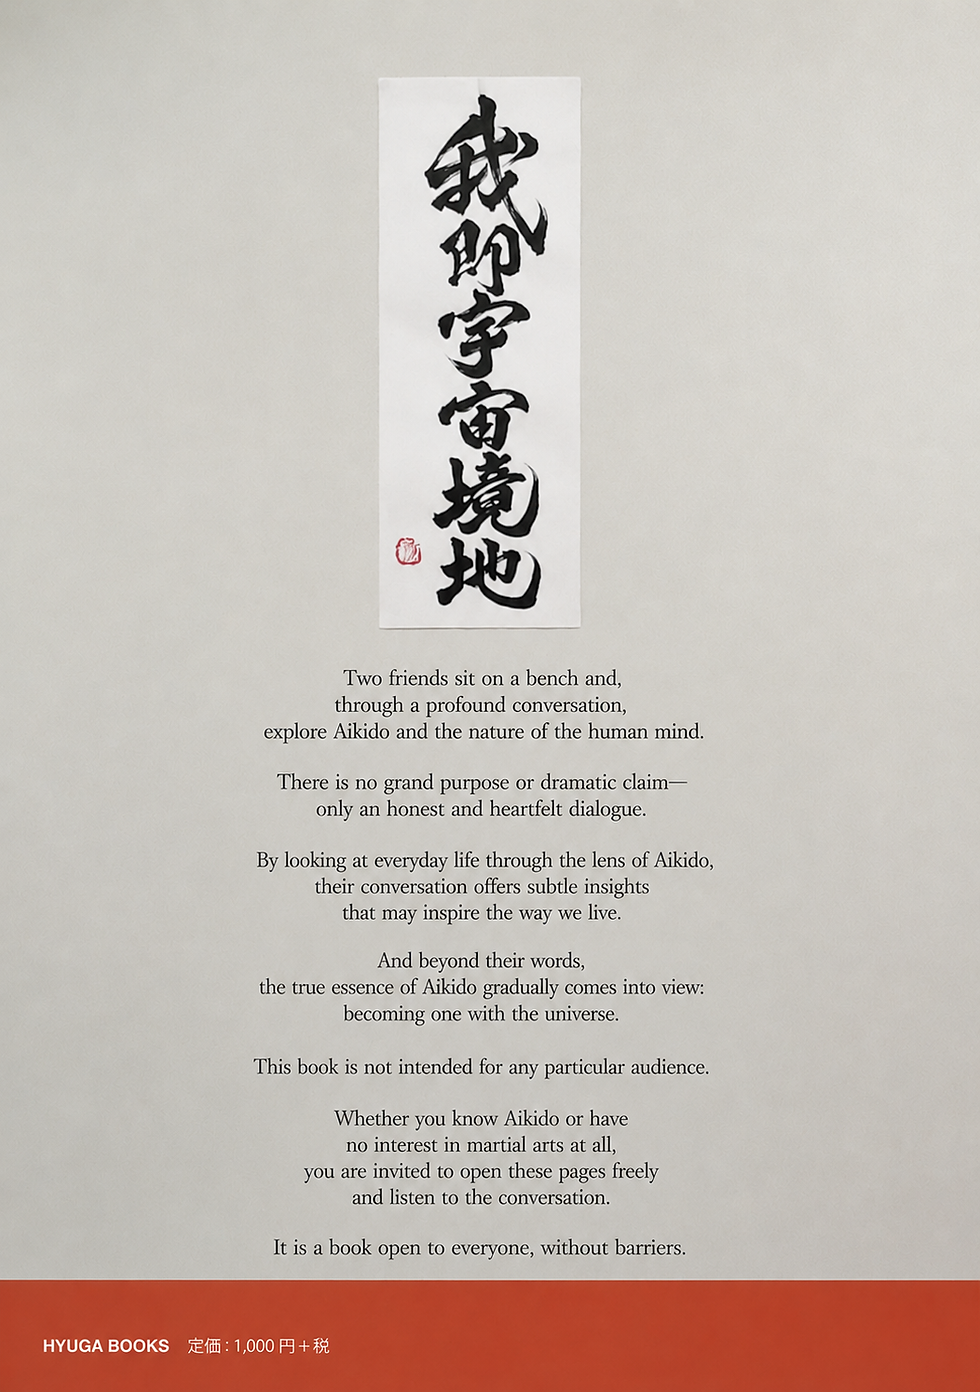 我即宇宙境地
Two friends sit on a bench and,
through a profound conversation,
explore Aikido and the nature of the human mind.
There is no grand purpose or dramatic claim—
only an honest and heartfelt dialogue.
By looking at everyday life through the lens of Aikido,
their conversation offers subtle insights
that may inspire the way we live.
And beyond their words,
the true essence of Aikido gradually comes into view:
becoming one with the universe.
This book is not intended for any particular audience.
Whether you know Aikido or have
no interest in martial arts at all,
you are invited to open these pages freely
and listen to the conversation.
It is a book open to everyone, without barriers.
HYUGA BOOKS 定価：1,000 円＋税